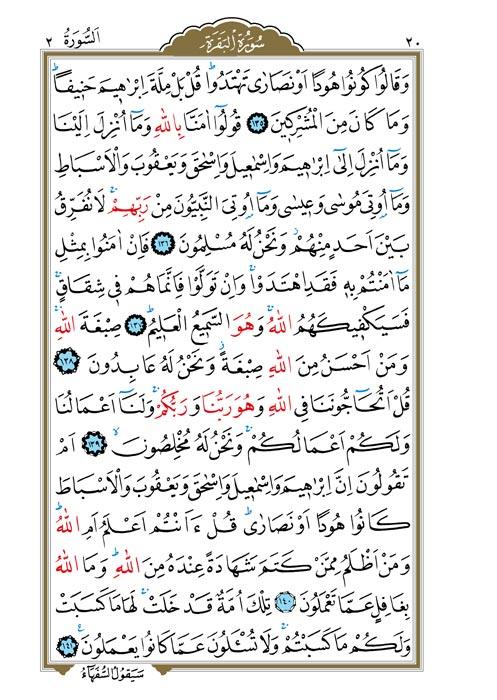 ٢٠ سُورَةُ الْبَقَرَةِ اَلسُّورَةُ ٢
وَقَالُوا كُونُوا هُودًا اَوْ نَصَارٰى تَهْتَدُواؕ قُلْ بَلْ مِلَّةَ اِبْرٰه۪يمَ حَن۪يفًاؕ
وَمَا كَانَ مِنَ الْمُشْرِك۪ينَ ﴿١٣٥﴾ قُولُٓوا اٰمَنَّا بِاللّٰهِ وَمَٓا اُنْزِلَ اِلَيْنَا
وَمَٓا اُنْزِلَ اِلٰٓى اِبْرٰه۪يمَ وَاِسْمٰع۪يلَ وَاِسْحٰقَ وَيَعْقُوبَ وَالْاَسْبَاطِ
وَمَٓا اُو۫تِيَ مُوسٰى وَع۪يسٰى وَمَٓا اُو۫تِيَ النَّبِيُّونَ مِنْ رَبِّهِمْۚ لَا نُفَرِّقُ
بَيْنَ اَحَدٍ مِنْهُمْۘ وَنَحْنُ لَهُ مُسْلِمُونَ ﴿١٣٦﴾ فَاِنْ اٰمَنُوا بِمِثْلِ
مَٓا اٰمَنْتُمْ بِه۪ فَقَدِ اهْتَدَوْاۚ وَاِنْ تَوَلَّوْا فَاِنَّمَا هُمْ ف۪ي شِقَاقٍۚ
فَسَيَكْف۪يكَهُمُ اللّٰهُۚ وَهُوَ السَّم۪يعُ الْعَل۪يمُؕ ﴿١٣٧﴾ صِبْغَةَ اللّٰهِۚ
وَمَنْ اَحْسَنُ مِنَ اللّٰهِ صِبْغَةًۘ وَنَحْنُ لَهُ عَابِدُونَ ﴿١٣٨﴾
قُلْ اَتُحَٓاجُّونَنَا فِي اللّٰهِ وَهُوَ رَبُّنَا وَرَبُّكُمْۚ وَلَنَٓا اَعْمَالُنَا
وَلَكُمْ اَعْمَالُكُمْۚ وَنَحْنُ لَهُ مُخْلِصُونَۙ ﴿١٣٩﴾ اَمْ
تَقُولُونَ اِنَّ اِبْرٰه۪يمَ وَاِسْمٰع۪يلَ وَاِسْحٰقَ وَيَعْقُوبَ وَالْاَسْبَاطَ
كَانُوا هُودًا اَوْ نَصَارٰىؕ قُلْ ءَاَنْتُمْ اَعْلَمُ اَمِ اللّٰهُؕ
وَمَنْ اَظْلَمُ مِمَّنْ كَتَمَ شَهَادَةً عِنْدَهُ مِنَ اللّٰهِؕ وَمَا اللّٰهُ
بِغَافِلٍ عَمَّا تَعْمَلُونَ ﴿١٤٠﴾ تِلْكَ اُمَّةٌ قَدْ خَلَتْۚ لَهَا مَا كَسَبَتْ
وَلَكُمْ مَا كَسَبْتُمْۚ وَلَا تُسْـَٔلُونَ عَمَّا كَانُوا يَعْمَلُونَ۟ ﴿١٤١﴾
سَيَقُولُ السُّفَهَٓاءُ